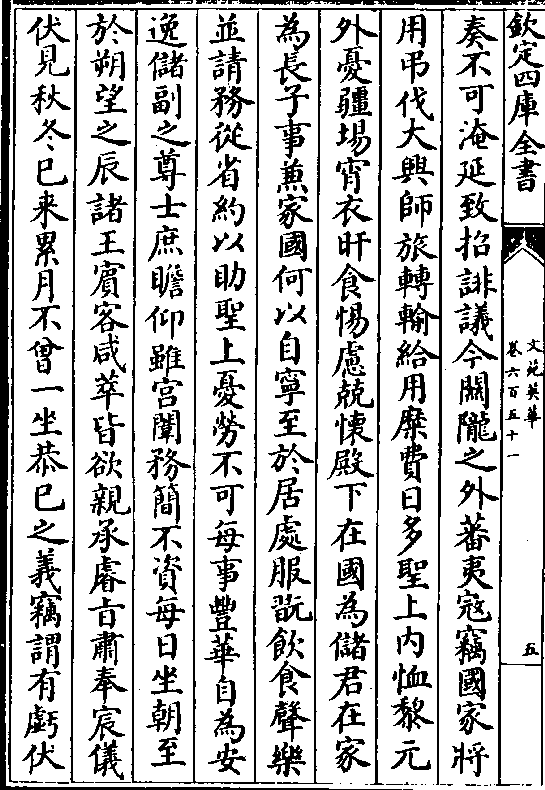 欽定四庫全書
文苑英華
卷六百五十一
五
奏不可淹延致招誹議今關隴之外蕃夷寇竊國家將
用弔伐大興師旅轉輸給用糜費日多聖上内恤黎元
外憂疆埸宵衣旰食惕慮兢懷殿下在國為儲君在家
為長子事兼家國何以自寧至於居處服翫飲食聲樂
並請務從省約以助聖上憂勞不可每事豐華自為安
逸儲副之尊士庶瞻仰雖宫闈務簡不資每日坐朝至
於朔望之辰諸王賓客咸萃皆欲親承睿旨肅奉宸儀
伏見秋冬已来累月不曾一坐恭已之義竊謂有虧伏